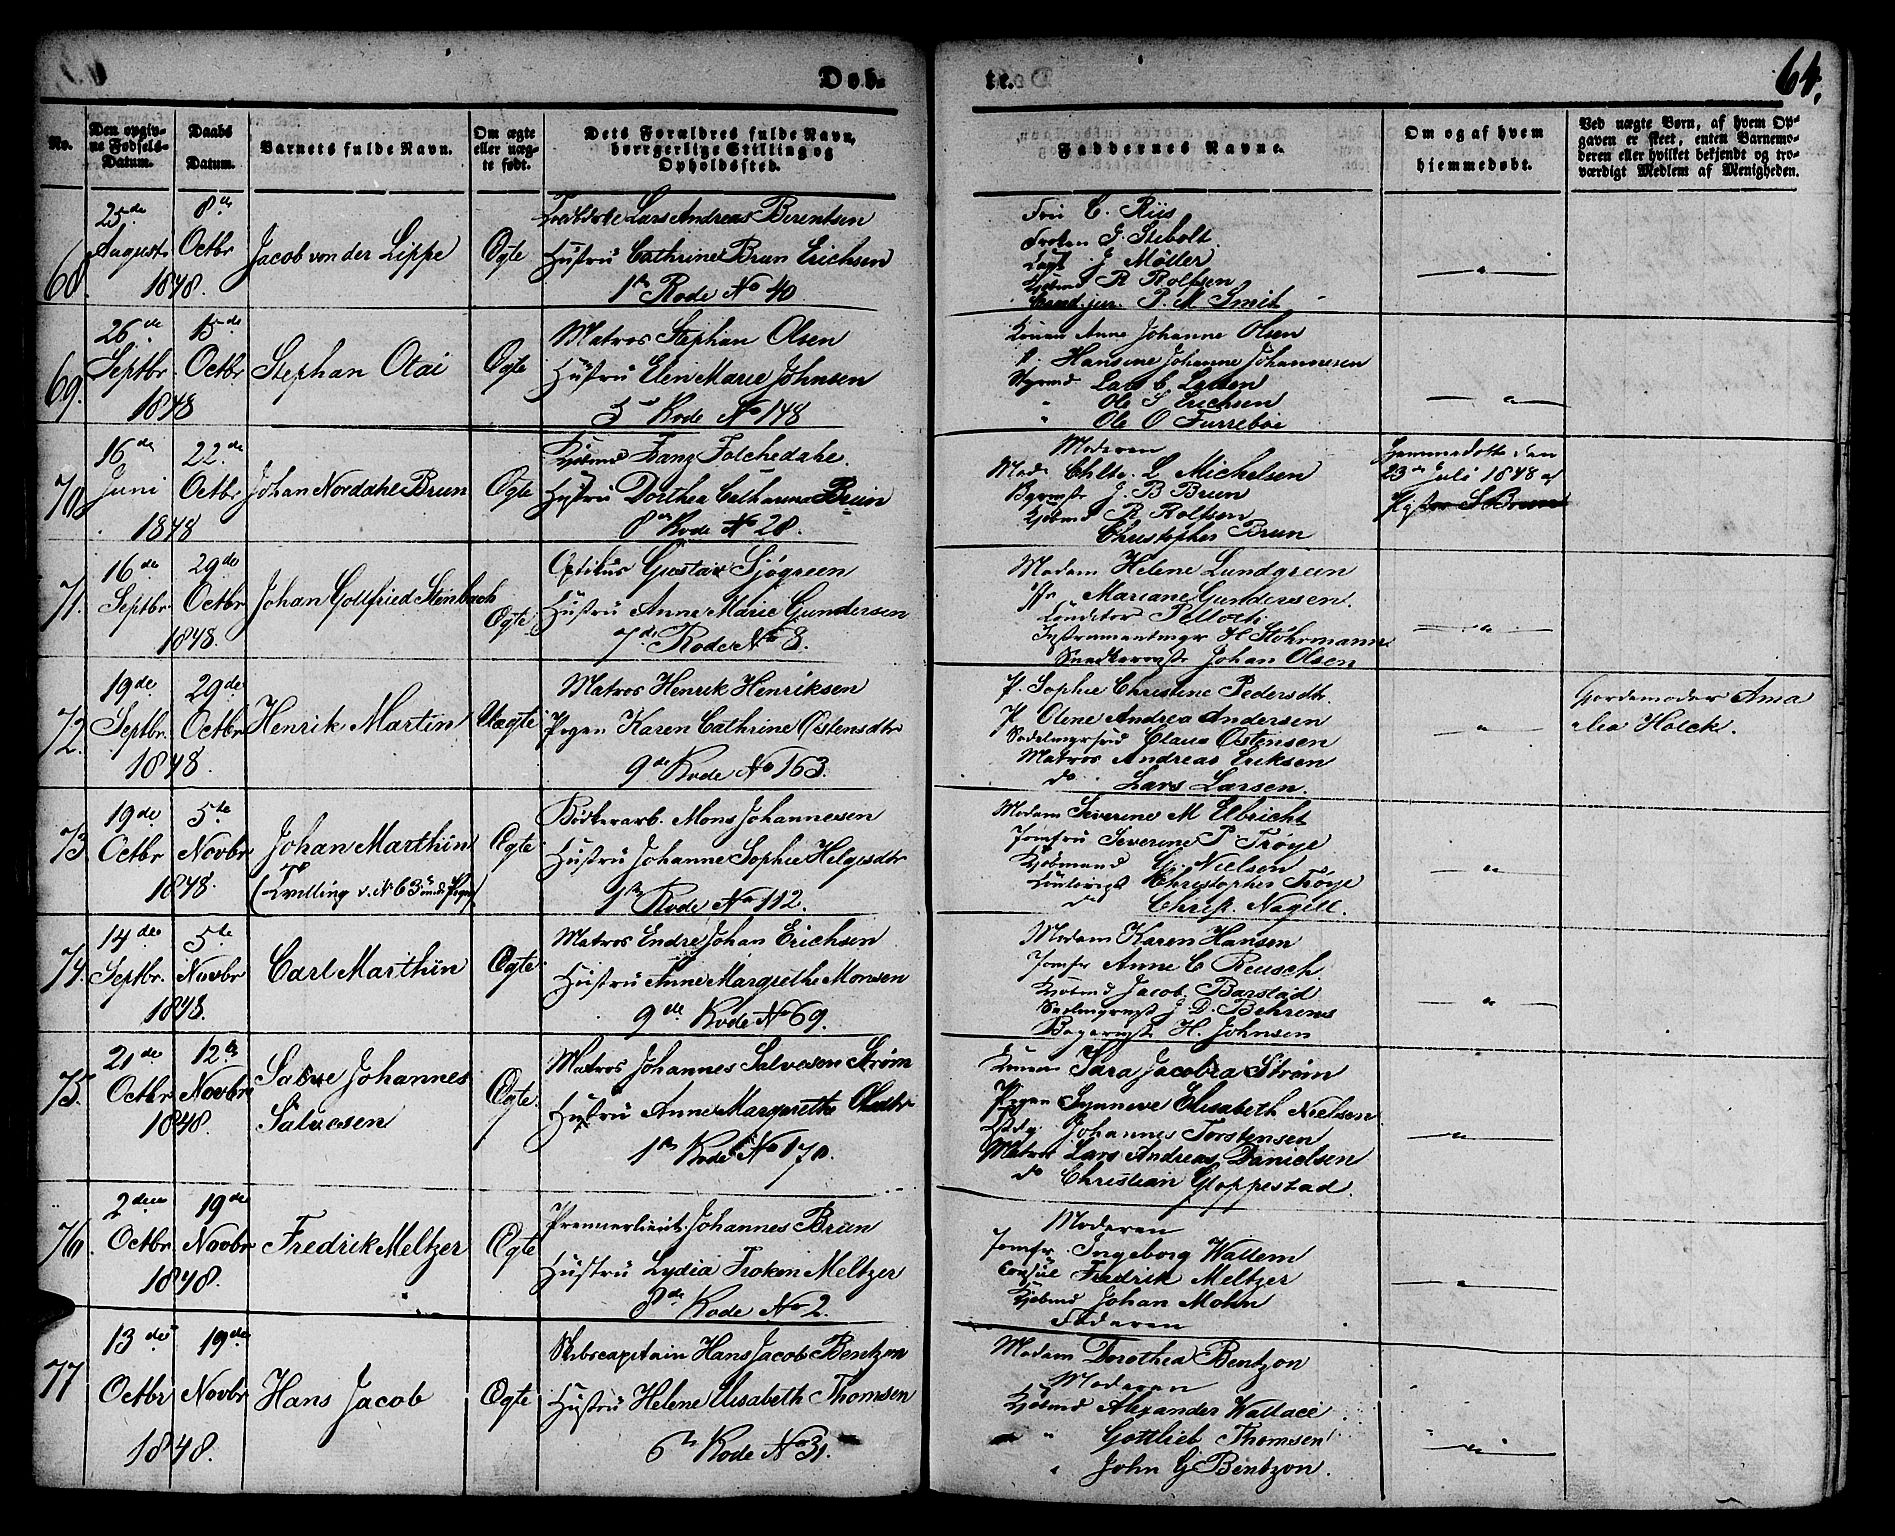 Døb-
te.
64.
No.
Den opgiv-
ne Fødsels-
Datum.
Daabs
Datum.
Barnets fulde Navn.
Om ægte
eller uæg-
te født.
Dets Forældres fulde Navn,
borgerlige Stilling og
Opholdssted.
Faddernes Navne.
Om og af hvem
hjemmedøbt.
Ved uægte Børn, af hvem Op-
gaven er skeet, enten Barnemo-
deren eller hvilket bekjendt og tro-
værdigt Medlem af Menigheden.
68.
25de
August
1848.
8de
Octbr
Jacob von der Lippe
Ægte
Lars Andreas Berentsen
Hustru Cathrine Brun Erichsen
1ste Rode No 40
Fru C. Riis
Frøken J. Stibolt.
J Møller
Kjøbmd R Rolfsen
Cand. jur. P. M. Smit
69.
26de
Septbr
1848
15de
Octbr
Stephan Otai
Ægte
Matros Stephan Olsen
Hustru Elen Marie Johnsen
5te Rode No 148
Konen Anne Johanne Olsen
P. Hansine Johanne Johannesen
Styrmd Lars C. Larsen
" Ole S Erichsen
" Ole O Furreboe
70.
16de
Juni
1848
22de
Octbr
Johan Nordahl Brun
Ægte
Kjøbmd Fanz Folchedahe.
Hustru Dorthea Catharina Brun
8de Rode No 28.
Moderen
Mad. Chltte. L Michelsen
J. B Brun
Kjøbmd R Rolfsen
Christopher Brun
Hjemmedøbt den
23de Juli 1848 af
S Brun
71.
16de
Septbr
1848.
29de
Octbr
Johan Gottfried Steinbach
Ægte
Optikus Gustav Sjögreen
Hustru Anne Marie Gundersen
7de Rode No 8.
Madam Helene Lundgreen
Jfr Mariane Gundersen.
Conditor Pelloti
Instrumentmgr H Støhrmann
Snedkermstr Johan Olsen
72.
19de
Septbr.
1848.
29de
Octbr
Henrik Martin
Uægte
Matros Henrik Henriksen
Pigen Karen Cathrine Østensdtr
9de Rode No 163.
P. Sophie Christine Pedersdtr.
P Olene Andrea Andersen
Sadelmgrsvd Claus Østensen
Matros Andreas Eriksen
do Lars Larsen.
Gjordemoder Ama
lia Holck.
73.
19de
Octbr
1848.
5te
Novbr
Johan Marthin
(Tvilling v. N 63 und. Piger)
Ægte
Bødkerarb. Mons Johannesen
Hustru Johanne Sophie Helgesdtr
1ste Rode No 112.
Madam Severine M Elbricht
Jomfru Severine P Trøye
Kjøbmand C. Nielsen
Christopher Trøye
do Christ. Nagell.
74.
14de
Septbr.
1848.
5te
Novbr
Carl Marthin
Ægte
Matros Endre Johan Erichsen
Hustru Anne Margrethe Monsen
9de Rode No 69.
Madam Karen Hansen
Jomfr Anne C Reusch
Kjøbmd Jacob Barstad
J. D. Behrens
H. Johnsen
75.
21de
Octbr
1848.
12te
Novbr
Salve Johannes
Salvesen
Ægte.
Matros Johannes Salvesen Strøm
Hustru Anne Margrethe Olsdtr
1ste Rode No 170.
Konen Sara Jacobea Strøm
Pigen Synneve Elisabeth Nielsen
Johannes Torstensen
Matros Lars Andreas Danielsen
do Christian Gloppestad.
76.
2den
Octbr
1848.
19de
Novbr
Fredrik Meltzer
Ægte
Premierlieut. Johannes Brun
Hustru Lydia Frøken Meltzer
8de Rode No 2.
Moderen
Jomfr. Ingeborg Wallem
Consul Fredrik Meltzer
Kjøbmd Johan Mohn
Faderen
77
13de
Octbr
1848.
19de
Novbr
Hans Jacob
Ægte
Skibscapitain Hans Jacob Bentzon
Hustru Helene Elisabeth Thomsen
6te Rode No 31.
Madam Dorothea Bentzon
Moderen
Kjøbmd Alexander Wallace
" Gottlieb Thomsen
" John G Bentzon.